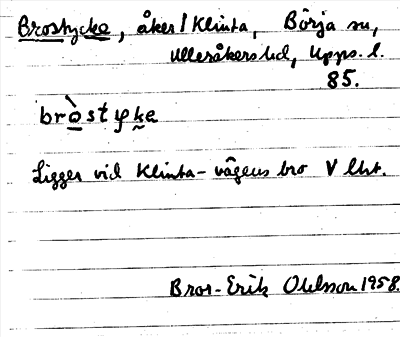 Brostycke, åker / Klinta, Börja sn,
Ulleråkers hd, Upps. l.
85.
bròstyke
Ligger vid Klinta-vägens bro V
Bror-Erik Ohlsson 1958.